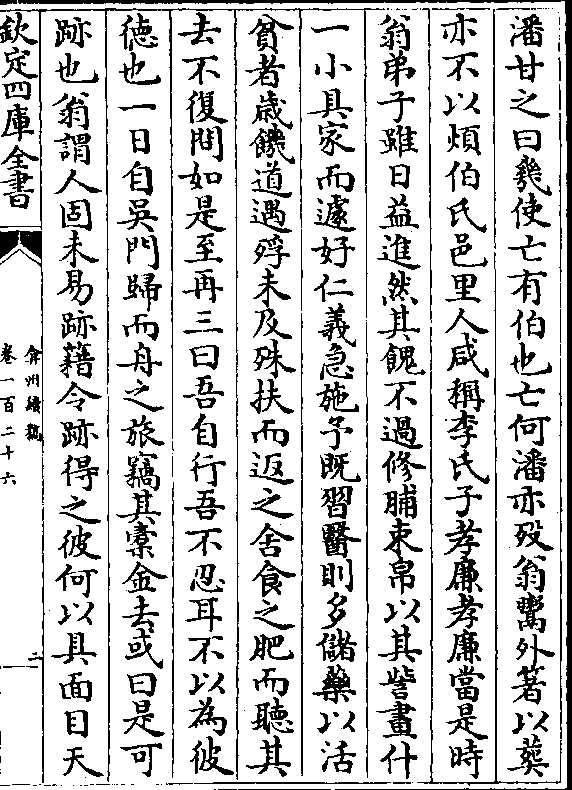 潘甘之曰㡬使亡有伯也亡何潘亦殁翁鬻外箸以葬
亦不以煩伯氏邑里人咸稱李氏子孝廉孝廉當是時
翁弟子雖日益進然其餽不過修脯束帛以其訾畫什
一小具家而遽好仁義急施予既習醫則多儲藥以活
貧者歲饑道遇殍未及殊扶而返之舍食之肥而聽其
去不復問如是至再三曰吾自行吾不忍耳不以為彼
徳也一日自吳門歸而舟之旅竊其槖金去或曰是可
跡也翁謂人固未易跡藉令跡得之彼何以具面目天
欽定四庫全書
弇州續稿
卷一百二十六
二